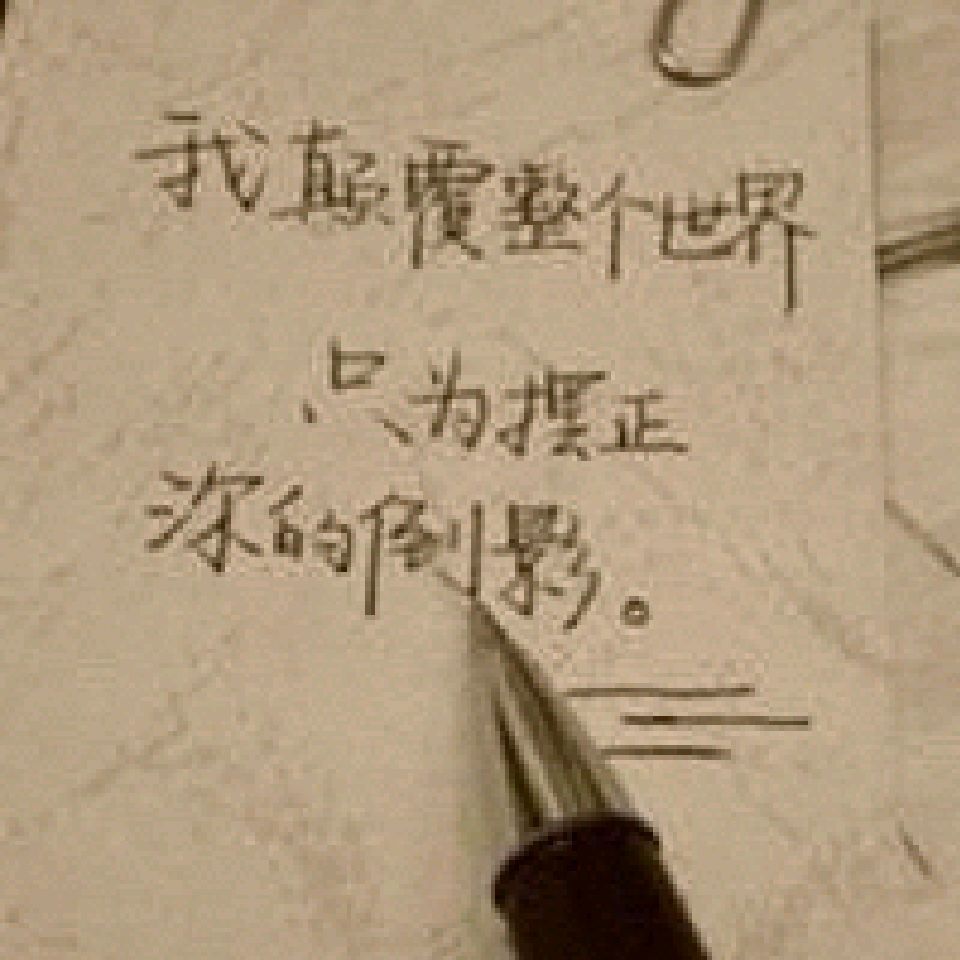 我颠覆整个世界
只为摆正
沵的倒影。